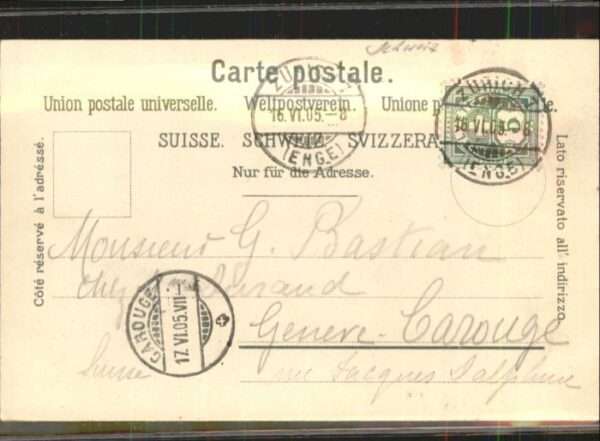 Schweiz
Carte postale.
Union postale universelle. Weltpostverein. Unione p
SUISSE. SCHWEIZ. SVIZZERA.
Nur für die Adresse.
Côté réservé à l'adresse.
Lato riservato all' indirizzo.
ZÜRICH
16.VI.05.–8
(ENGE)
ZÜRICH
16.VI.05.–8
(ENGE)
5
Monsieur G. Bastian
chez Durand
Genève-Carouge
Suisse rue Jacques Dalphin
CAROUGE
17.VI.05.VII–1